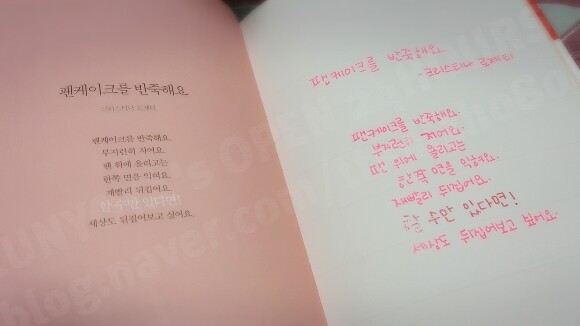 팬케이크를 반죽해요
크리스티나 로제티
팬케이크를 반죽해요.
부지런히 저어요.
팬 위에 올리고는
한쪽 면을 익혀요.
재빨리 뒤집어요.
할 수만 있다면!
세상도 뒤집어보고 싶어요.
팬케이크를 반죽해요.
- 크리스티나 로제티
팬케이크를 반죽해요.
부지런히 저어요.
팬 위에 올리고는
한쪽 면을 익혀요.
재빨리 뒤집어요.
할 수만 있다면!
세상도 뒤집어보고 싶어요.
blog.naver